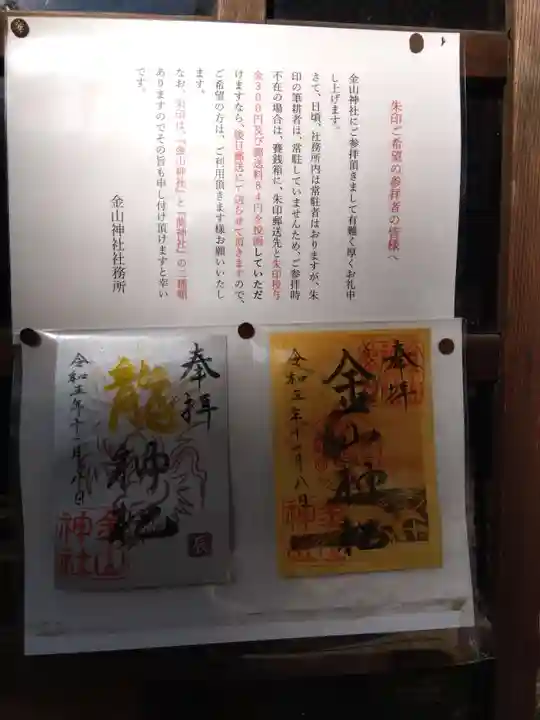 朱印ご希望の参拝者の皆様へ
金山神社にご参拝頂きまして有難く厚くお礼申
し上げます。
さて、日頃、社務所内は常駐者はおりますが、朱
印の筆耕者は、常駐していませんため、ご参拝時
不在の場合は、賽銭箱に、朱印郵送先と朱印授与
金300円及び郵送料84円を投函していただ
けますなら、後日郵送にて送らせて頂きますので、
ご希望の方は、ご利用頂きます様お願いいたし
ます。
なお、朱印は、「金山神社」と「龍神社」の二種類
ありますのでその旨も申し付け頂けますと幸い
です。
金山神社社務所
奉拝
金山神社
令和五年十一月八日
奉拝
龍神社
令和五年十一月八日
辰
金山
神社